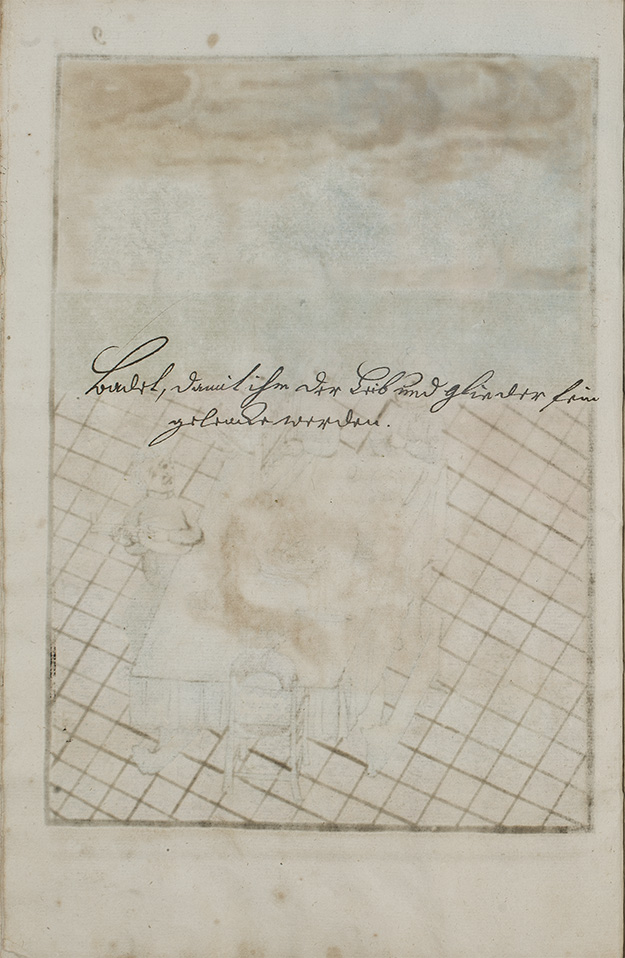 Badet, damit ihm der Leib und glieder fein
gelencke werden.